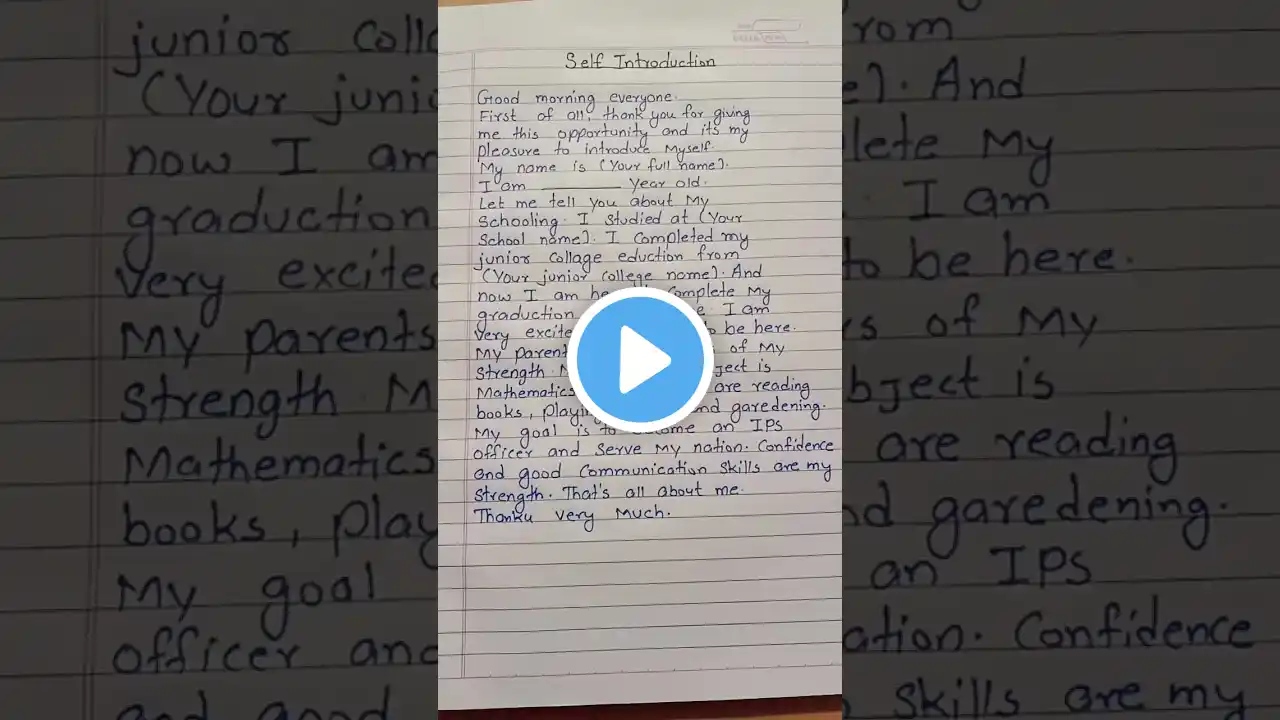 Self Introduction
Good morning everyone.
First of all, thank you for giving
me this opportunity and its my
pleasure to introduce Myself.
My name is (Your full name).
I am ________ Year old.
Let me tell you about My
Schooling. I studied at (Your
School name). I Completed my
junior Collage eduction from
(Your junior College name). And
now I am Complete My
graduction I am
Very be here.
My of My
Strength is
Mathematics are reading
books, garedening.
My goal is to an IPS
officer and Serve My nation. Confidence
and good Communication Skills are my
Strength. That's all about me.
Thanku Very Much.